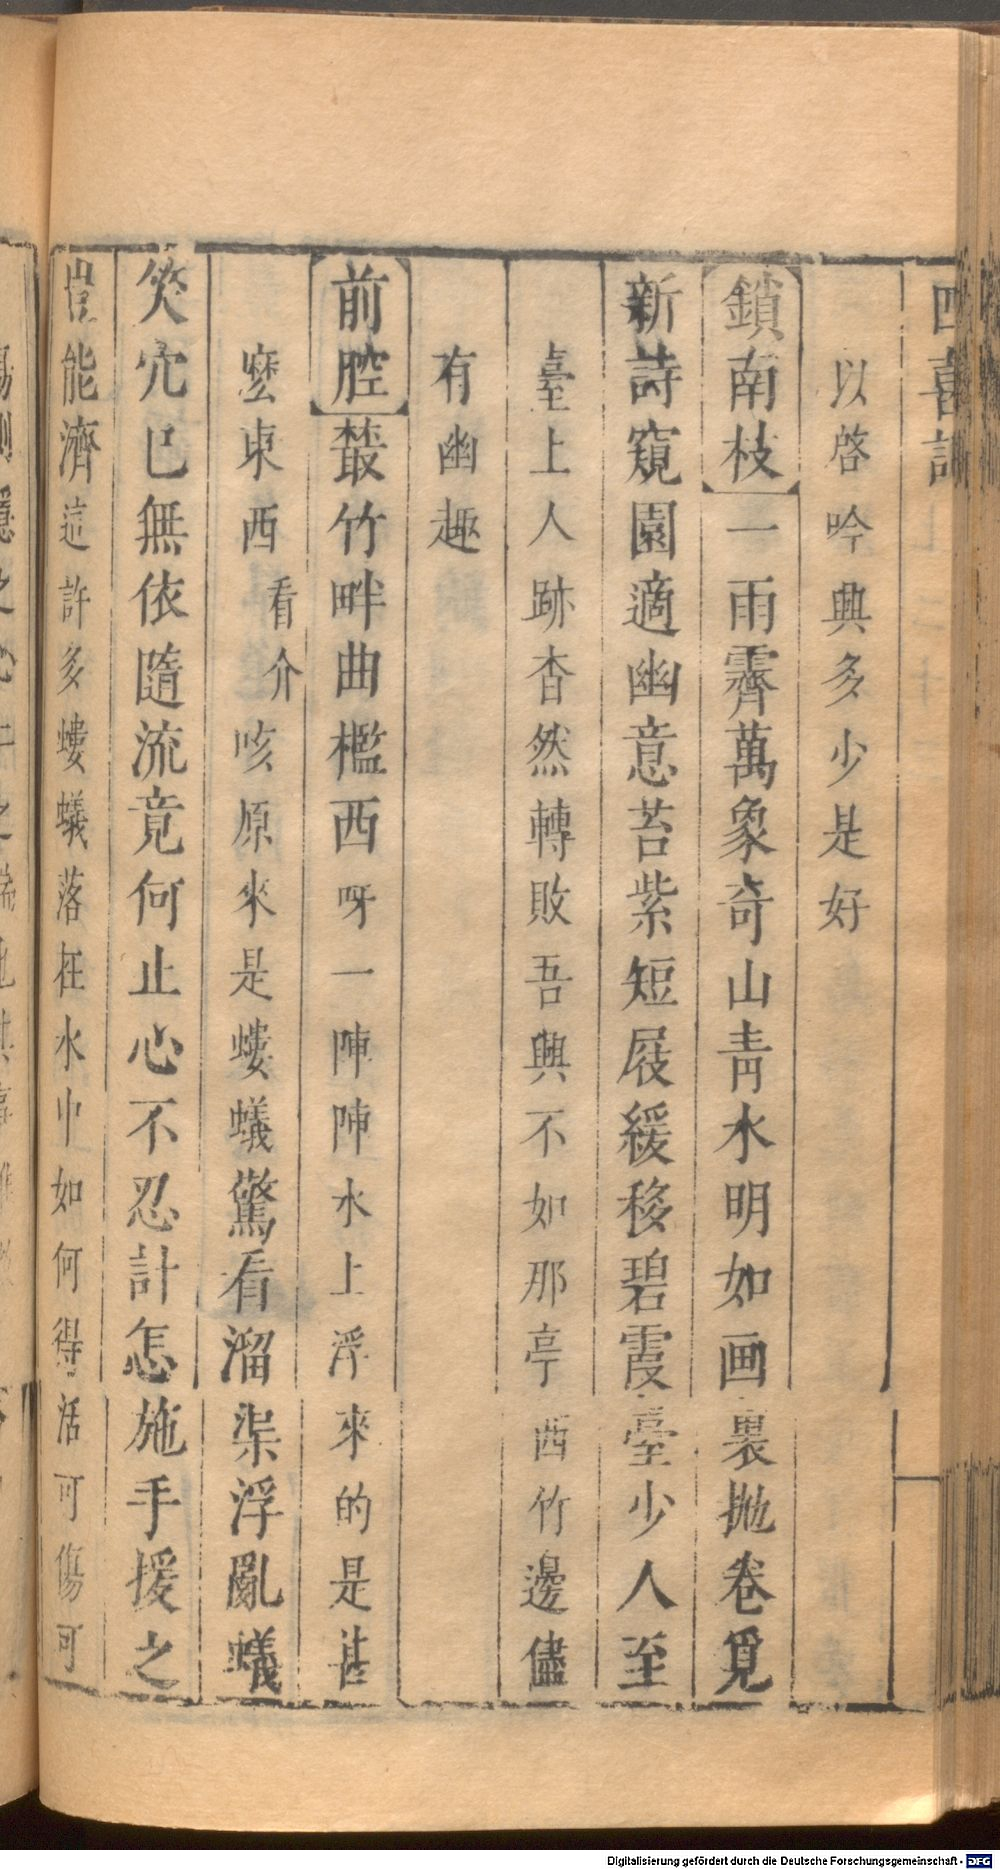 四喜記
以啓吟興多少是好
鎖南枝一雨霽萬象奇山靑水明如画裏抛卷覓
新詩窺園適幽意苔紫短屐緩移碧霞臺少人至
臺上人跡杳然轉敗吾興不如那亭西竹邊儘
有幽趣
前腔叢竹畔曲檻西呀一陣陣水上浮來的是甚
麽東西看介咳原來是螻蟻驚看溜渠浮亂蟻
穴已無依隨流竟何止心不忍計怎施手援之
豈能濟這許多螻蟻落在水中如何得活可傷可
Digitalisierung gefördert durch die Deutsche Forschungsgemeinschaft - DFG